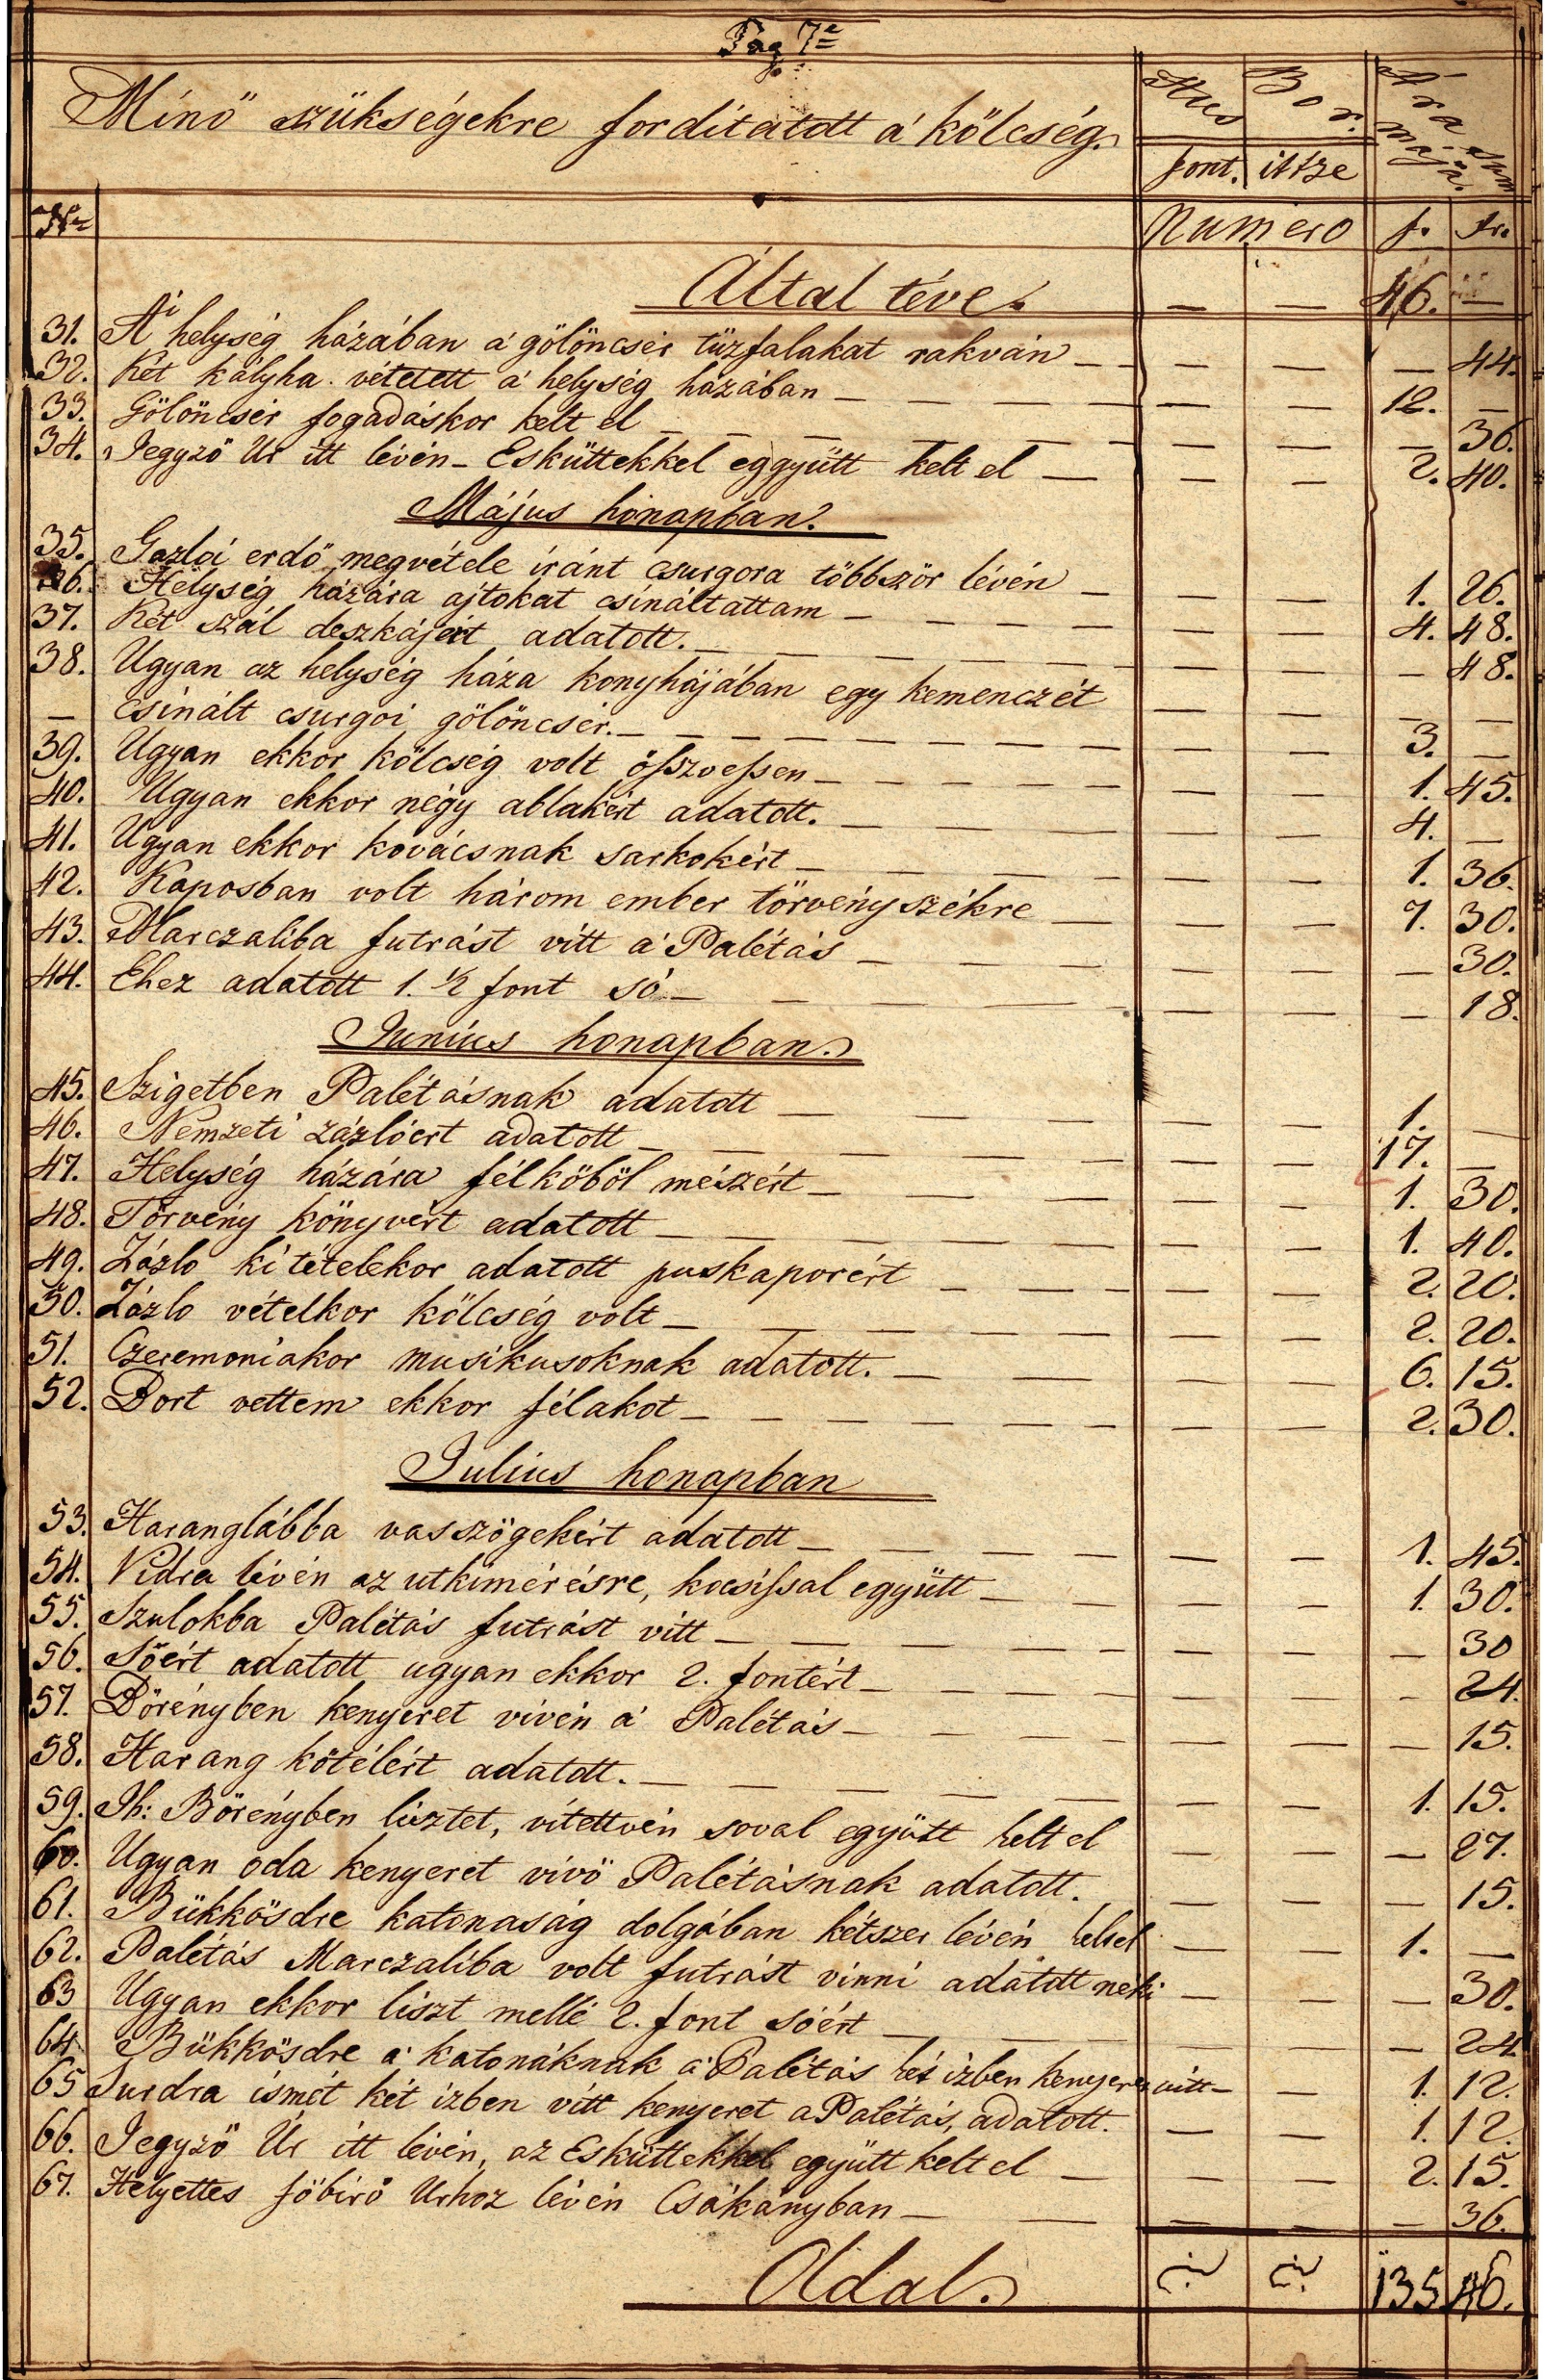 Pag 7=
Hus Bor. Ára Summája.
Minő szükségekre fordítatott a' kölcség.
font. ittze
No Numero f. kr.
Által téve. — — 46. —
31. A' helység házában a' gölöncsér tüzfalakat rakván — — — — 44.
32. Két kályha vétetett a' helység házában — — — 12. —
33. Gölöncsér fogadáskor kelt el — — — — 36.
34. Jegyző Ur itt lévén – Esküttekkel eggyütt kelt el — — — 2. 40.
Május hónapban.
35. Gazlói erdő megvétele iránt csurgora többször lévén — — — 1. 26.
36. Helység házára ajtokat csináltattam — — — 4. 48.
37. Két szál deszkájért adatott. — — — — 48.
38. Ugyan az helység háza konyhájában egy kemenczét — — — —
— csinált csurgoi gölöncsér. — — — 3. —
39. Ugyan ekkor kölcség volt öſszveſsen — — — 1. 45.
40. Ugyan ekkor négy ablakért adatott. — — — 4. —
41. Ugyan ekkor kovácsnak sarkokért — — — 1. 36.
42. Kaposban volt három ember törvényszékre — — — 7. 30.
43. Marczaliba futrást vitt a' Palétás — — — — 30.
44. Ehez adatott 1. ½ font só — — — — 18.
Junius honapban.
45. Szigetben Palétásnak adatott — — — 1. —
46. Nemzeti zázlóért adatott — — — 17. —
47. Helység házára félköböl mészért — — — 1. 30.
48. Törvény könyvért adatott — — — 1. 40.
49. Zázló kitételekor adatott puskaporért — — — 2. 20.
50. Zázlo vételkor kölcség volt — — — 2. 20.
51. Czeremoniakor musikusoknak adatott. — — — 6. 15.
52. Bort vettem ekkor félakot — — — 2. 30.
Julius honapban
53. Haranglábba vasszögekért adatott — — — 1. 45.
54. Vidra lévén az utkimérésre, kocsiſsal együtt — — — 1. 30.
55. Szulokba Palétás futrást vitt — — — — 30
56. Sóért adatott ugyan ekkor 2. fontért — — — — 24.
57. Börényben kenyeret vivén a' Palétás — — — — 15.
58. Harang kötélért adatott. — — — 1. 15.
59. Ih: Börényben lisztet, vitettvén soval együtt kelt el — — — 27.
60. Ugyan oda kenyeret vivö Palétásnak adatott. — — — 15.
61. Bükkösdre katonaság dolgában kétszer lévén kelt el — — 1. —
62. Palétás Marczaliba volt futrást vinni adatott neki — — — 30.
63 Ugyan ekkor liszt mellé 2. font sóért — — — — 24
64. Bükkösdre a' katonáknak a' Palétás két izben kenyeret vitt — — 1. 12.
65 Surdra ismét két izben vitt kenyeret a Palétás, adatott. — — 1. 12.
66. Jegyző Úr itt lévén, az Esküttekkel együtt kelt el — — — 2. 15.
67. Helyettes föbiró Urhoz lévén Csákányban — — — — 36.
Oldal. 135 46.